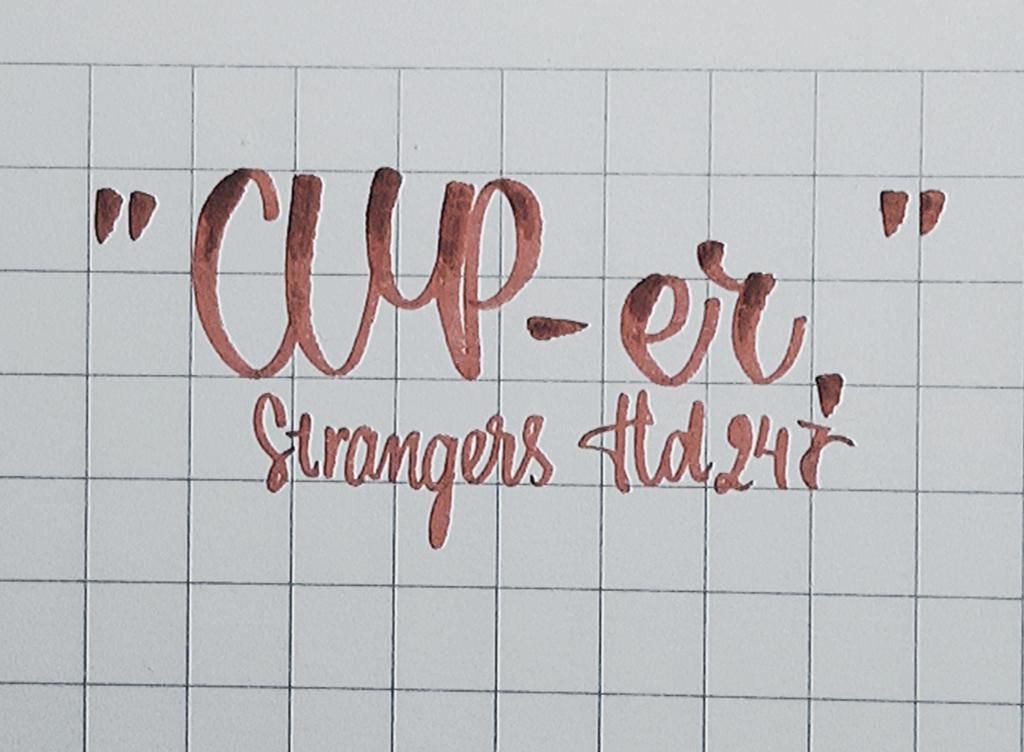 "CUP-er."
Strangers Hd247